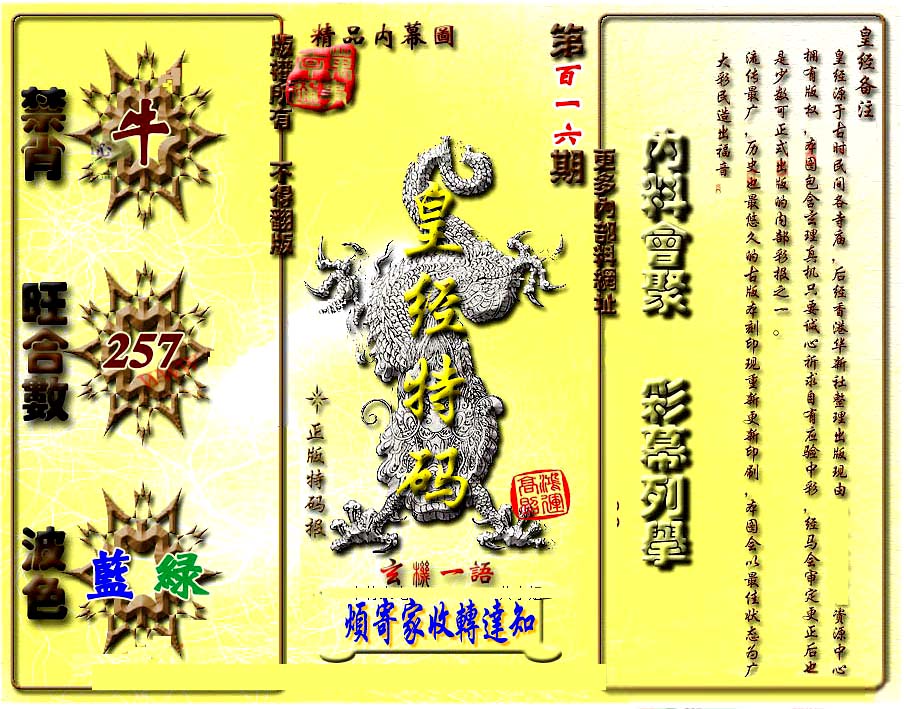 皇经备注
皇经源于古时民间各寺庙，后经香港华新社整理出版现由
资源中心
拥有版权，本图包含玄理真机只要诚心祈求自有应验中彩，经马会审定更正后也
是少数可正式出版的内部彩报之一。
流传最广，历史也最悠久的古版本刻印现重新更新印刷，本图会以最佳状态为广
大彩民造出福音
內料會聚
彩幕列舉
更多內部料網址
第百一六期
精品内幕圖
皇经特码
正版特码报
鴻運高照
玄機一語
煩寄家收轉達知
版權所有 不得翻版
禁肖
牛
旺合數
257
波色
藍 綠